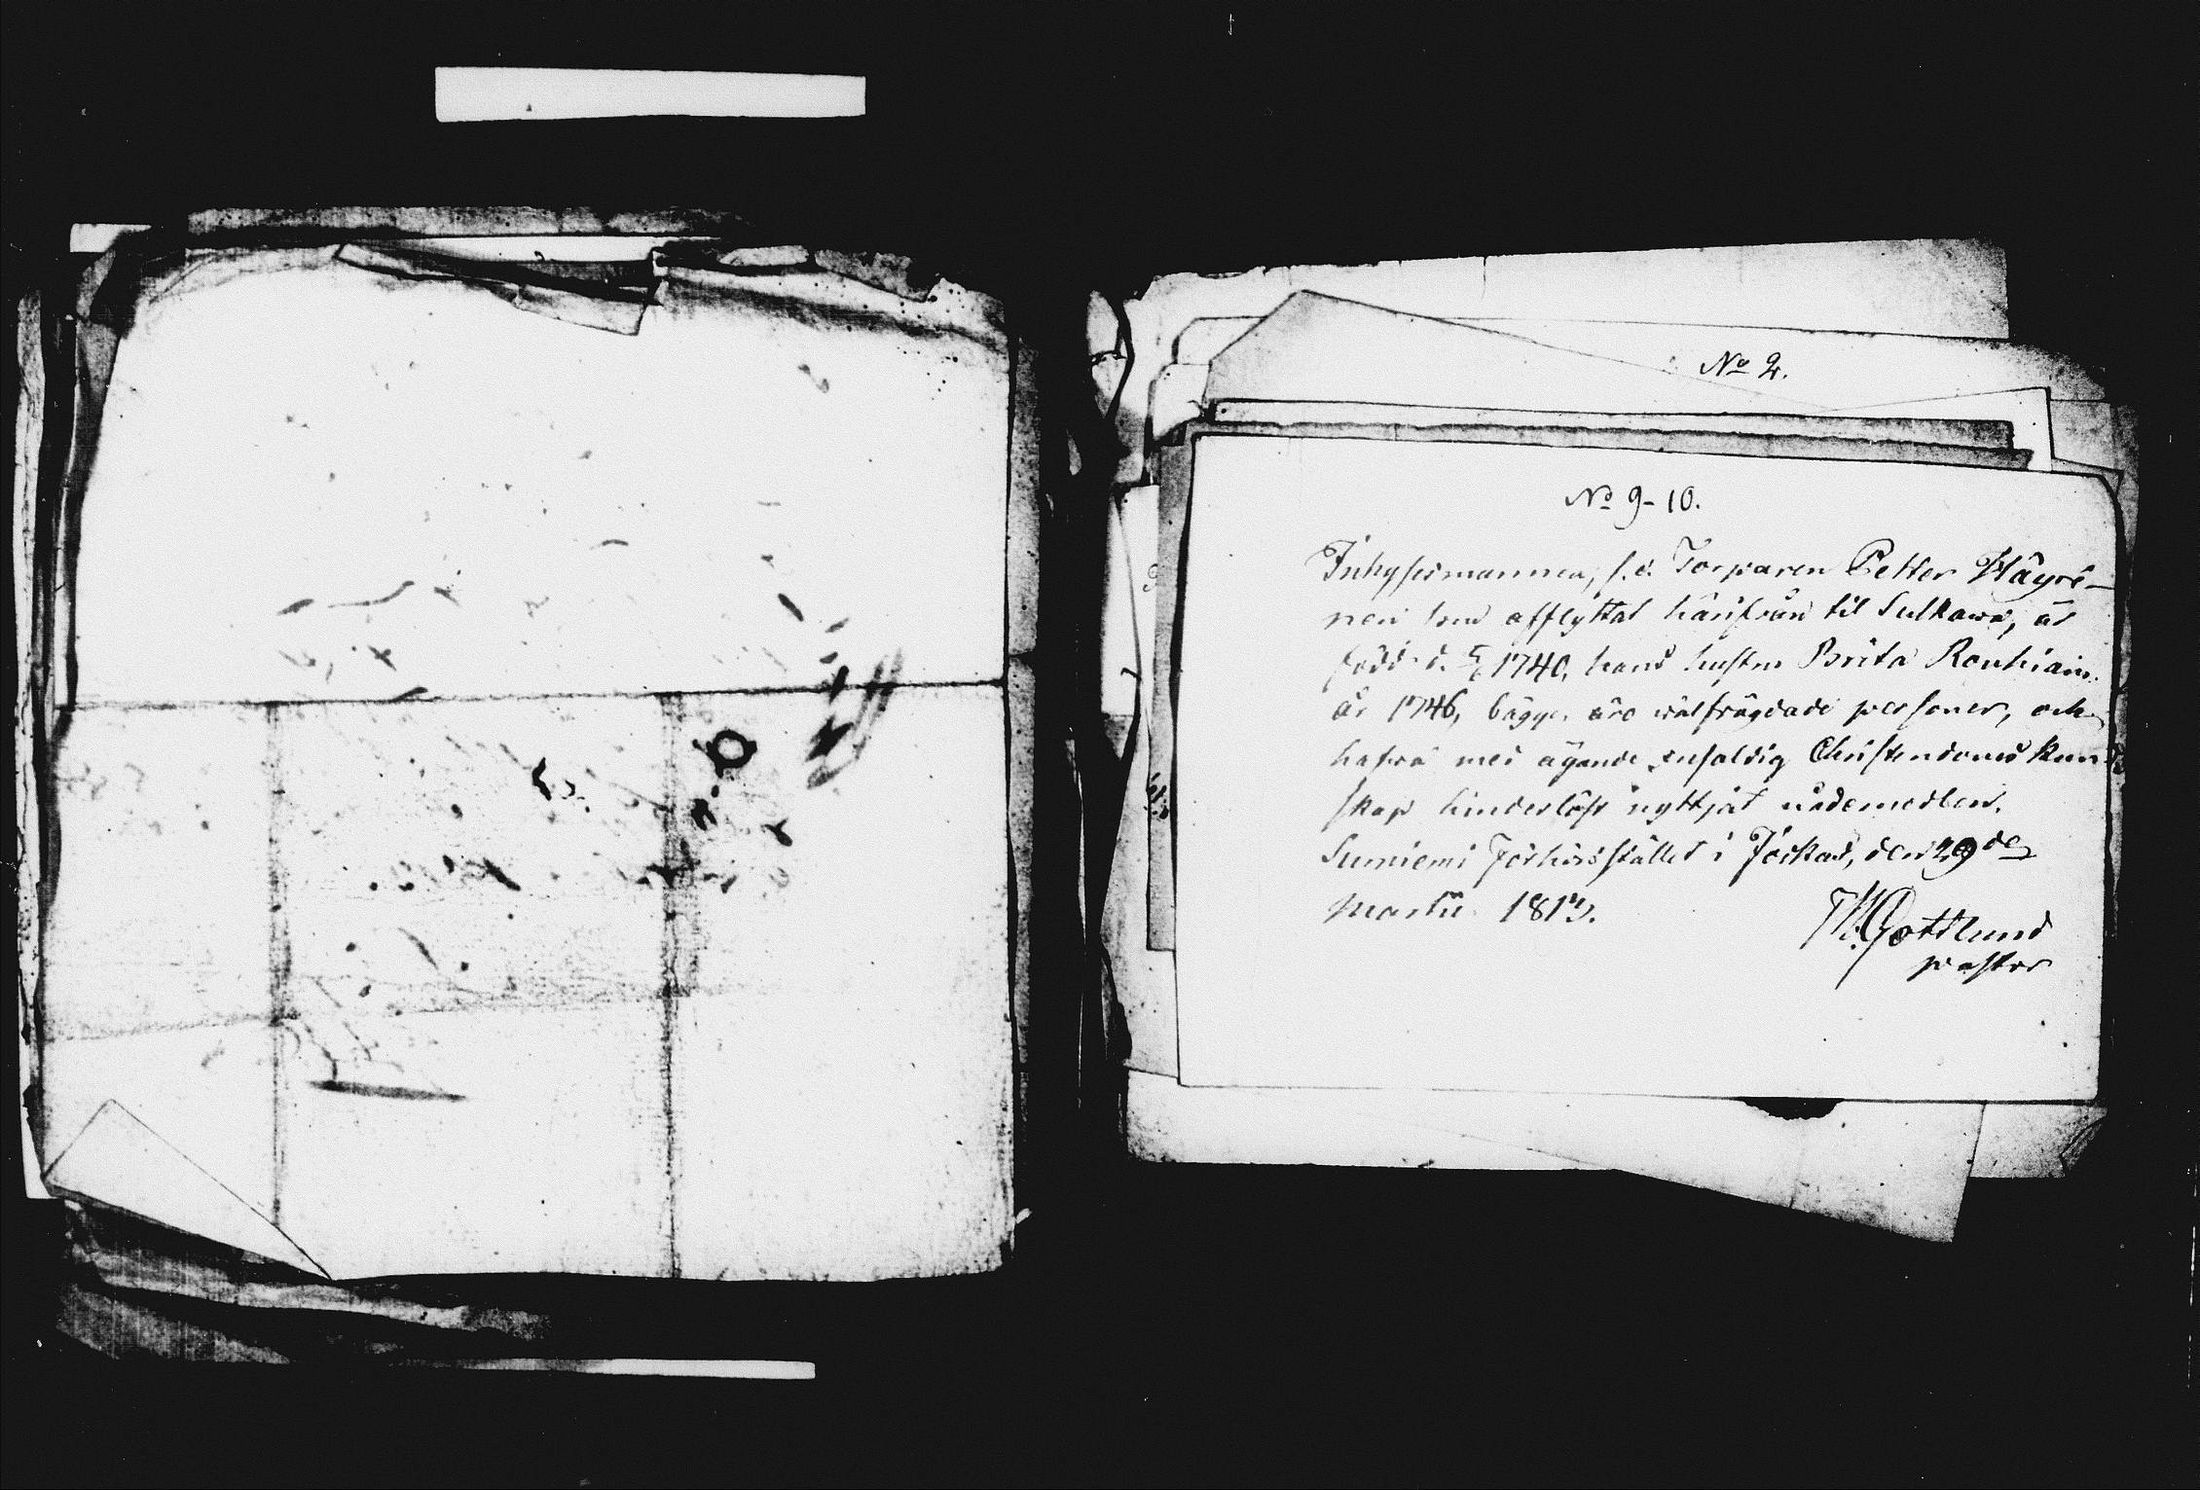 No 2.
No 9-10.
Inhysesmannen, f.d. Torparen Petter Häyrä-
nen som afflyttat härifrån til Sulkawa, är
född d. 5/6 1740, hans hustru Brita Rouhiain.
år 1746, bägge äro wälfrägdade personer, och
hafwa med ägande enfaldig Christendoms kun-
skap hinderlöst nyttjat nådemedlen.
Sumiemi Förhörsstället i Jockas, den 29de
Martii 1813.
M. Gottlund
pastor